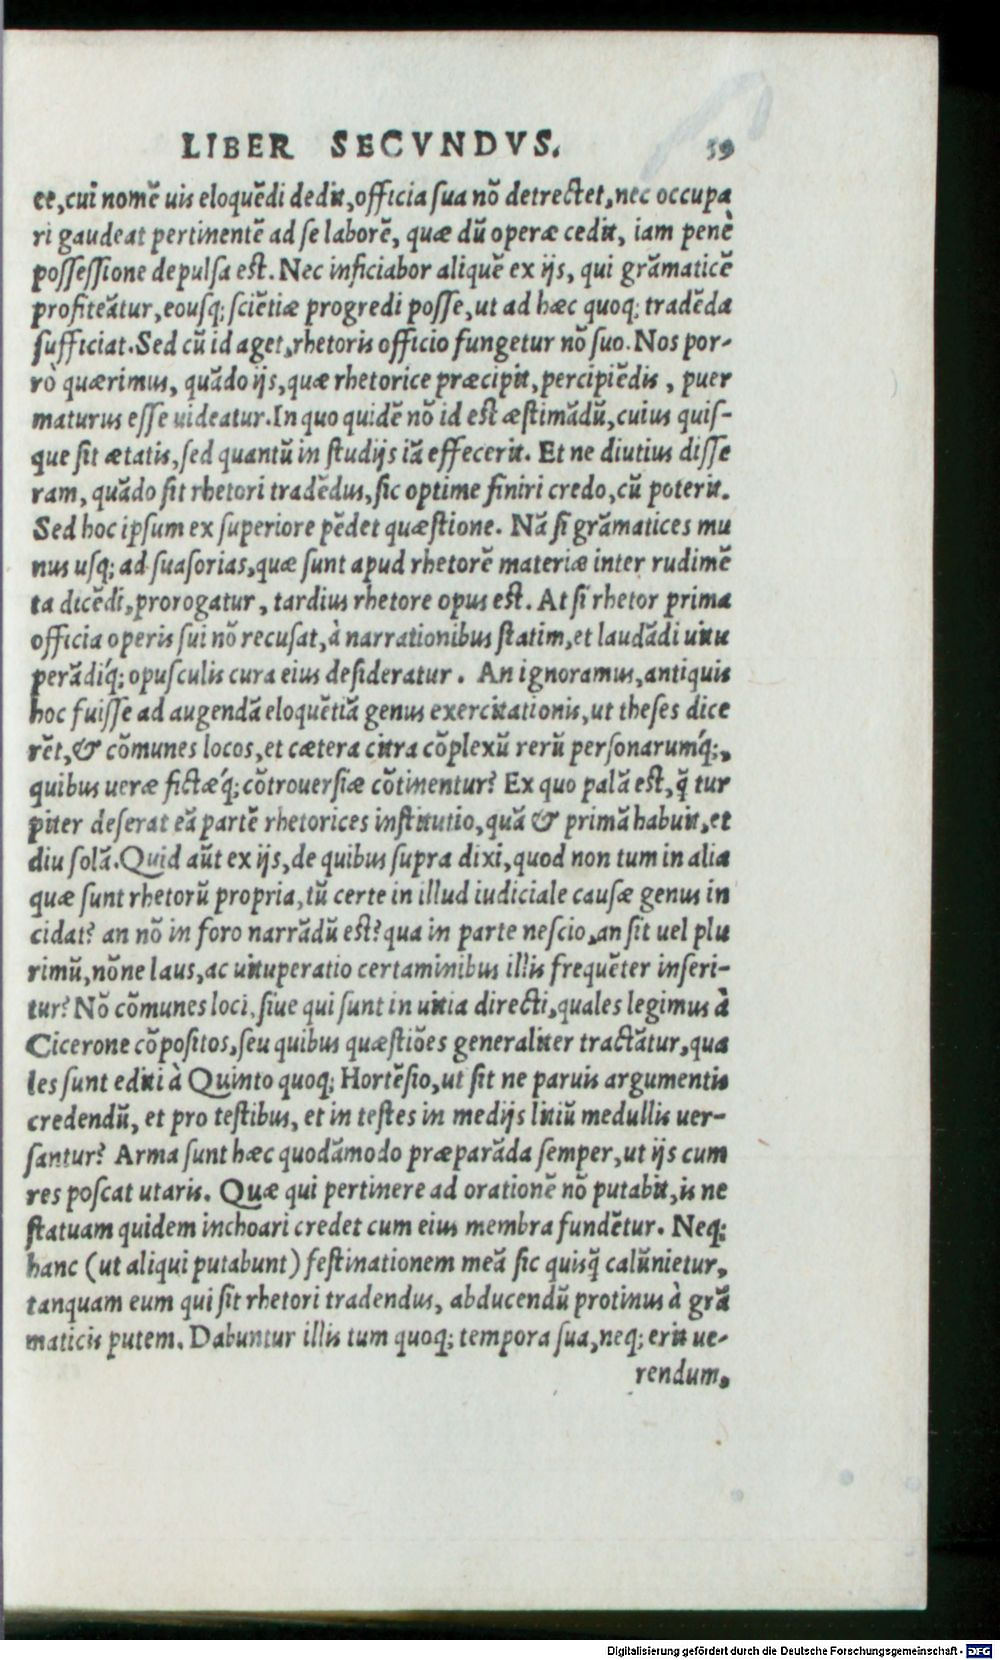 LIBER SECVNDVS. 39
ce, cui nomẽ uis eloquẽdi dedit, officia sua nõ detrectet, nec occupa
ri gaudeat pertinentẽ ad se laborẽ, quæ dũ operæ cedit, iam penè
possessione depulsa est. Nec inficiabor aliquẽ ex ijs, qui grãmaticẽ
profiteãtur, eousq; sciẽtiæ progredi posse, ut ad hæc quoq; tradẽda
sufficiat. Sed cũ id aget, rhetoris officio fungetur nõ suo. Nos por-
rò quærimus, quãdo ijs, quæ rhetorice præcipit, percipiẽdis, puer
maturus esse uideatur. In quo quidẽ nõ id est æstimãdũ, cuius quis-
que sit ætatis, sed quantũ in studijs iã effecerit. Et ne diutius disse
ram, quãdo sit rhetori tradẽdus, sic optime finiri credo, cũ poterit.
Sed hoc ipsum ex superiore pẽdet quæstione. Nã si grãmatices mu
nus usq; ad suasorias, quæ sunt apud rhetorẽ materiæ inter rudimẽ
ta dicẽdi, prorogatur, tardius rhetore opus est. At si rhetor prima
officia operis sui nõ recusat, à narrationibus statim, et laudãdi uitu
perãdiq́; opusculis cura eius desideratur. An ignoramus, antiquis
hoc fuisse ad augendã eloquẽtiã genus exercitationis, ut theses dice
rẽt, & cõmunes locos, et cætera citra cõplexũ rerũ personarumq́;,
quibus ueræ fictæq́; cõtrouersiæ cõtinentur? Ex quo palã est, q̃ tur
piter deserat eã partẽ rhetorices institutio, quã & primã habuit, et
diu solã. Quid aũt ex ijs, de quibus supra dixi, quod non tum in alia
quæ sunt rhetorũ propria, tũ certe in illud iudiciale causæ genus in
cidat? an nõ in foro narrãdũ est? qua in parte nescio, an sit uel plu
rimũ, nõne laus, ac uituperatio certaminibus illis frequẽter inseri-
tur? Nõ cõmunes loci, siue qui sunt in uitia directi, quales legimus à
Cicerone cõpositos, seu quibus quæstiões generaliter tractãtur, qua
les sunt editi à Quinto quoq; Hortẽsio, ut sit ne paruis argumentis
credendũ, et pro testibus, et in testes in medijs litiũ medullis uer-
santur? Arma sunt hæc quodãmodo præparãda semper, ut ijs cum
res poscat utaris. Quæ qui pertinere ad orationẽ nõ putabit, is ne
statuam quidem inchoari credet cum eius membra fundẽtur. Neq;
hanc (ut aliqui putabunt) festinationem meã sic quisq̃ calũnietur,
tanquam eum qui sit rhetori tradendus, abducendũ protinus à grã
maticis putem. Dabuntur illis tum quoq; tempora sua, neq; erit ue-
rendum,
Digitalisierung gefördert durch die Deutsche Forschungsgemeinschaft - DFG